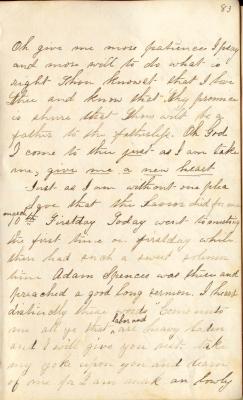 83
Oh give me more patience I pray
and more will to do what is
right Thou knowest that I love
thee and know that thy promise
is shure that thou will be a
father to the fatherless. Oh God
I come to thee just as I am take
me, give me a new heart
Just as I am without one plea
I give that the Savior did for me
march 10th Firstday Today went to meeting
the first time on firstday while
then had such a sweet solemn
time Adam Spences was there and
preached a good long sermon. I heard
distinctly these words "Come unto
me all ye that labor and are heavy laden
and I will give you rest take
my yoke upon you and learn
of me for I am meak an lowly